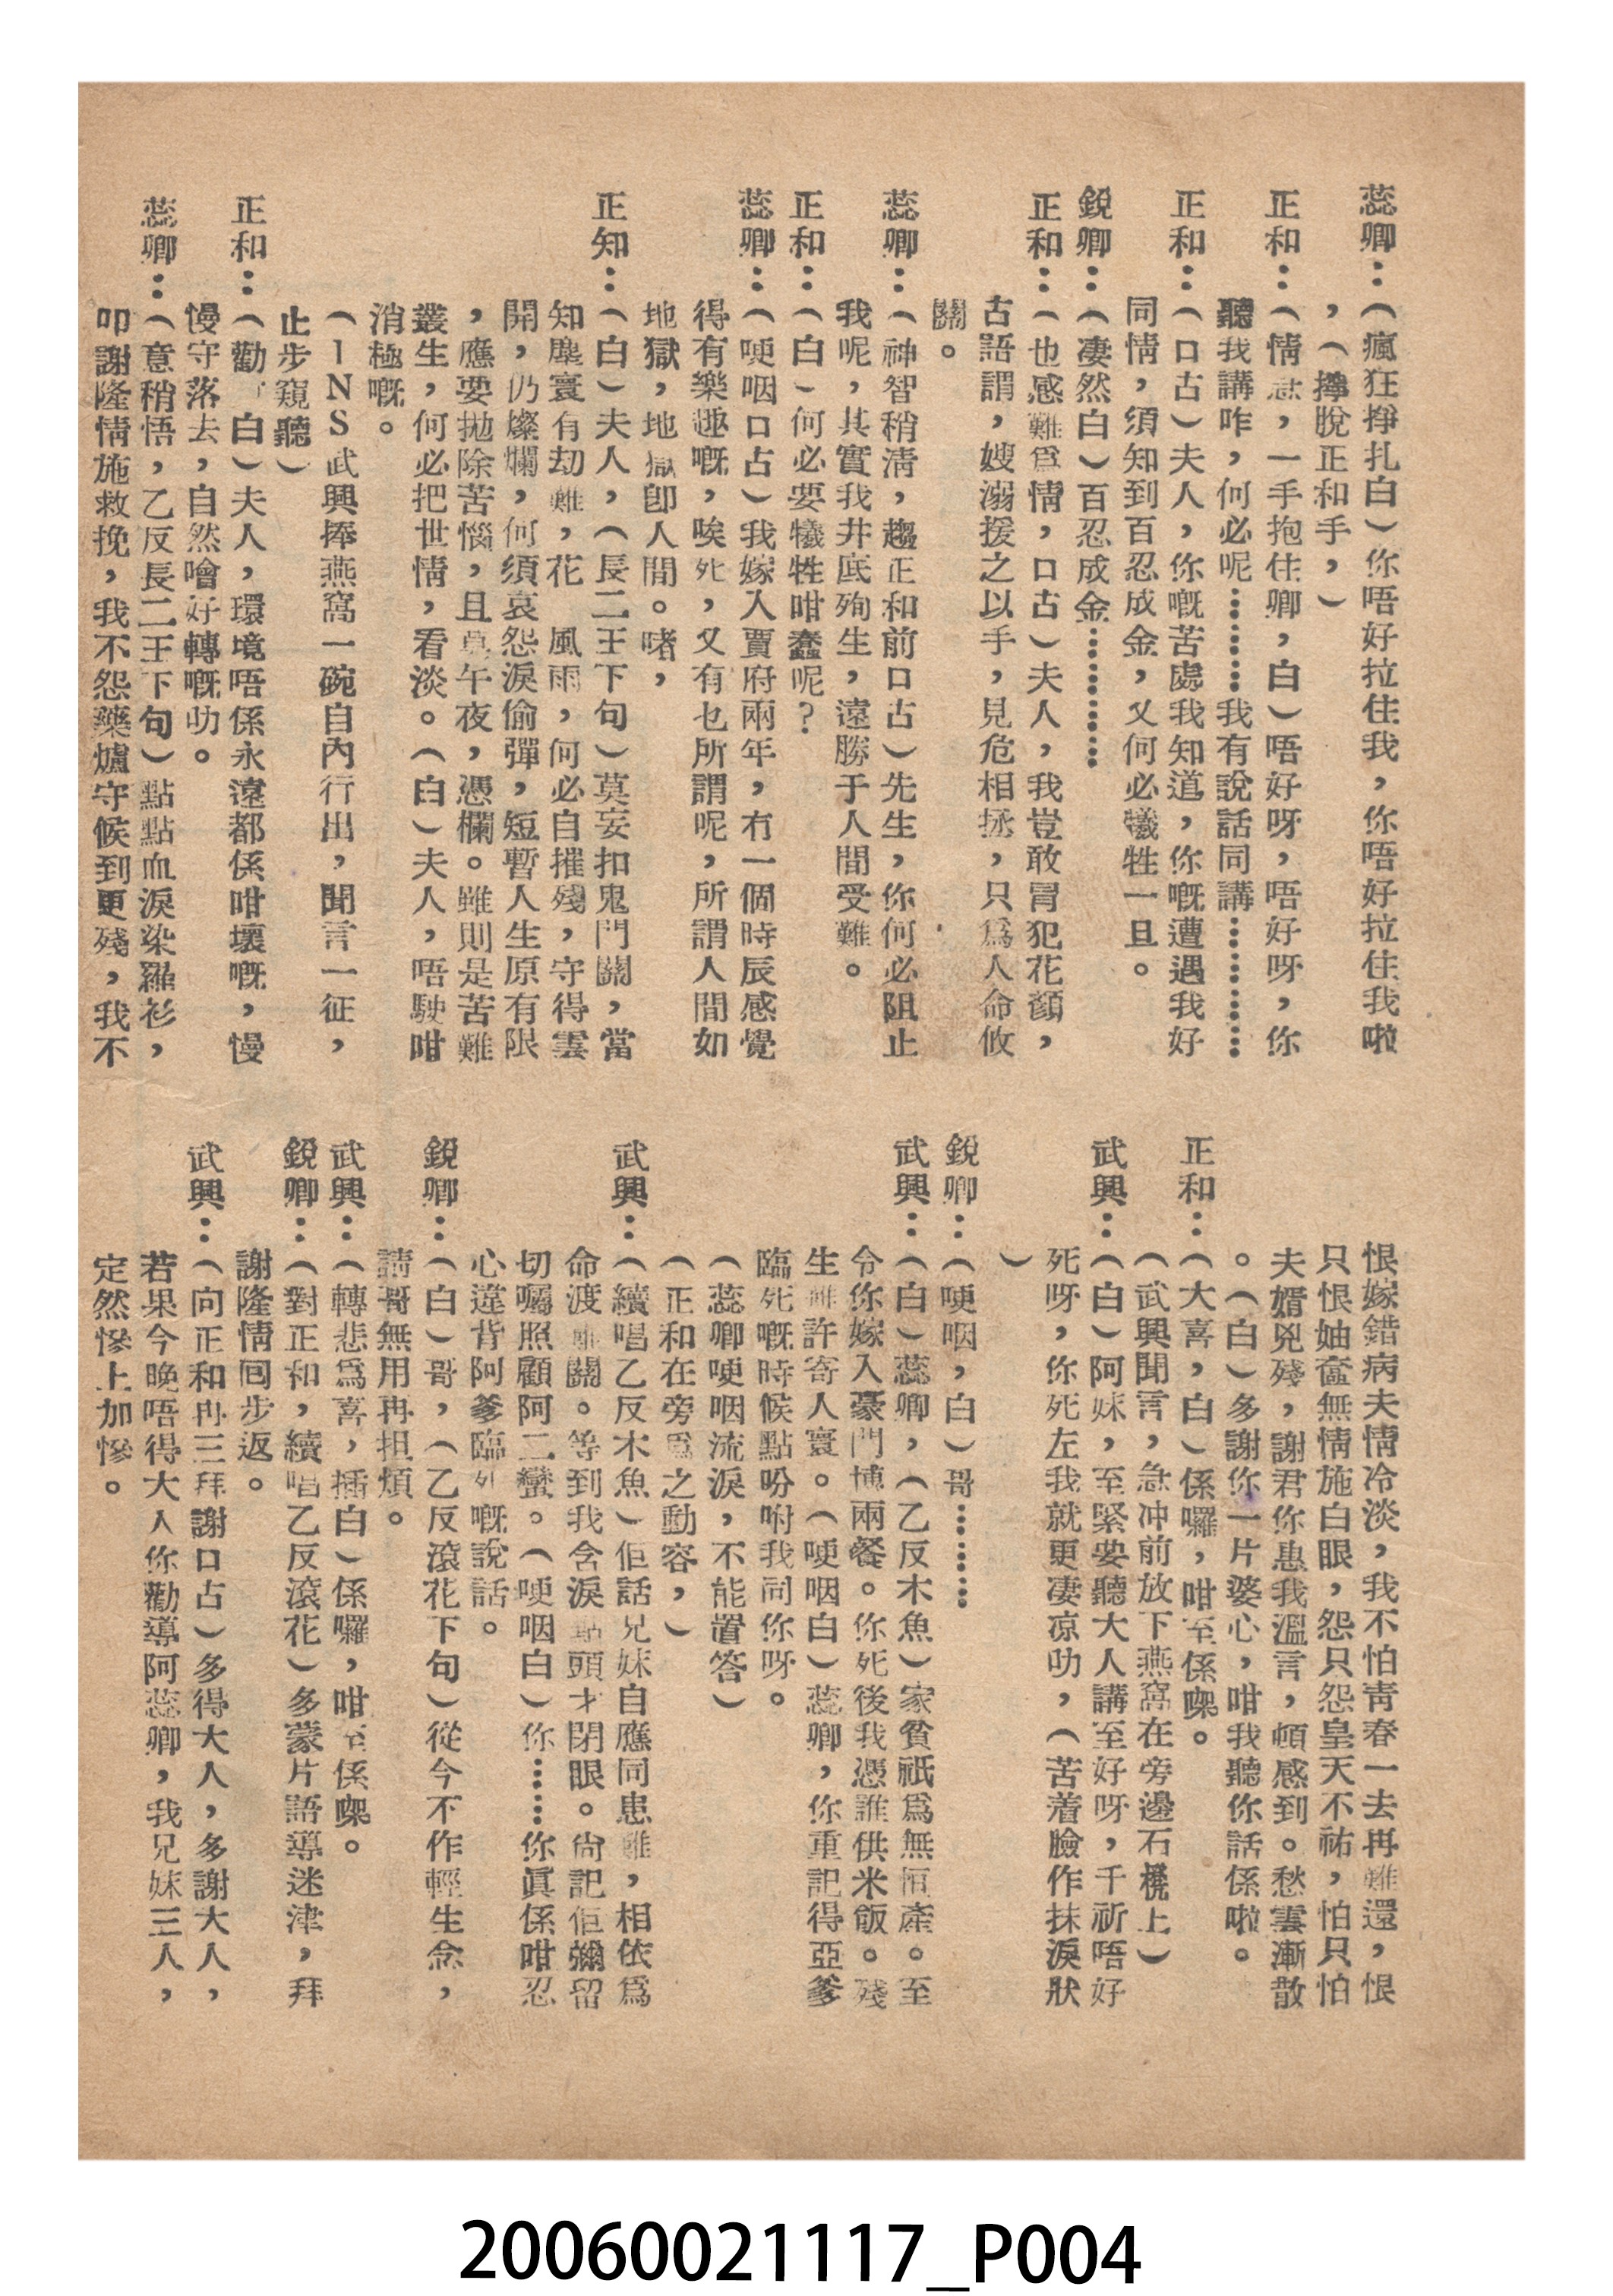 蕊卿：（瘋狂掙扎白）你唔好拉住我，你唔好拉住我啦
，（擰脫正和手，）
正和：（情急，一手抱住卿，白）唔好呀，唔好呀，你
聽我講咋，何必呢…………我有說話同講…………
正和：（口古）夫人，你嘅苦處我知道，你嘅遭遇我好
同情，須知到百忍成金，又何必犧牲一旦。
銳卿：（凄然白）百忍成金…………
正和：（也感難爲情，口古）夫人，我豈敢冐犯花顏，
古語謂，嫂溺援之以手，見危相拯，只爲人命攸
關。
蕊卿：（神智稍淸，趨正和前口古）先生，你何必阻止
我呢，其實我井底殉生，遠勝于人間受難。
正和：（白）何必要犧牲咁蠢呢？
蕊卿：（哽咽口古）我嫁入賈府兩年，冇一個時辰感覺
得有樂趣嘅，唉死，又有乜所謂呢，所謂人間如
地獄，地獄卽人間。啫，
正知：（白）夫人，（長二王下句）莫妄扣鬼門關，當
知塵寰有刧難，花　風雨，何必自摧殘，守得雲
開，仍燦爛，何須哀怨淚偷彈，短暫人生原有限
，應要抛除苦惱，且莫午夜，憑欄。雖則是苦難
叢生，何必把世情，看淡。（白）夫人，唔駛咁
消極嘅。
（INS武興捧燕窩一碗自內行出，聞言一征，
止步窺聽）
正和：（勸「白）夫人，環境唔係永遠都係咁壞嘅，慢
慢守落去，自然噲好轉嘅叻。
蕊卿：（意稍悟，乙反長二王下句）點點血淚染羅衫，
叩謝隆情施救挽，我不怨藥爐守候到更殘，我不
恨嫁錯病夫情冷淡，我不怕靑春一去再難還，恨
只恨妯奩無情施白眼，怨只怨皇天不祐，怕只怕
夫婿兇殘，謝君你惠我溫言，頓感到。愁雲漸散
。（白）多謝你一片婆心，咁我聽你話係啦。
正和：（大喜，白）係囉，咁至係㗎。
（武興聞言，急冲前放下燕窩在旁邊石櫈上）
武興：（白）阿妹，至緊要聽大人講至好呀，千祈唔好
死呀，你死左我就更凄凉叻，（苦着臉作抹淚狀
）
銳卿：（哽咽，白）哥………
武興：（白）蕊卿，（乙反木魚）家貧祇爲無恒產。至
令你嫁入豪門博兩餐。你死後我憑誰供米飯。殘
生難許寄人寰。（哽咽白）蕊卿，你重記得亞爹
臨死嘅時候點吩咐我同你呀。
（蕊卿哽咽流淚，不能置答）
（正和在旁爲之動容，）
武興：（續唱乙反木魚）佢話兄妹自應同患難，相依爲
命渡難關。等到我含淚點頭才閉眼。尙記佢彌留
切囑照顧阿二蠻。（哽咽白）你……你眞係咁忍
心違背阿爹臨死嘅說話。
銳卿：（白）哥，（乙反滾花下句）從今不作輕生念，
請哥無用再担煩。
武興：（轉悲爲喜，插白）係囉，咁至係㗎。
銳卿：（對正和，續唱乙反滾花）多蒙片語導迷津，拜
謝隆情囘步返。
武興：（向正和再三拜謝口古）多得大人，多謝大人，
若果今晚唔得大人你勸導阿蕊卿，我兄妹三人，
定然慘上加慘。
20060021117_P004